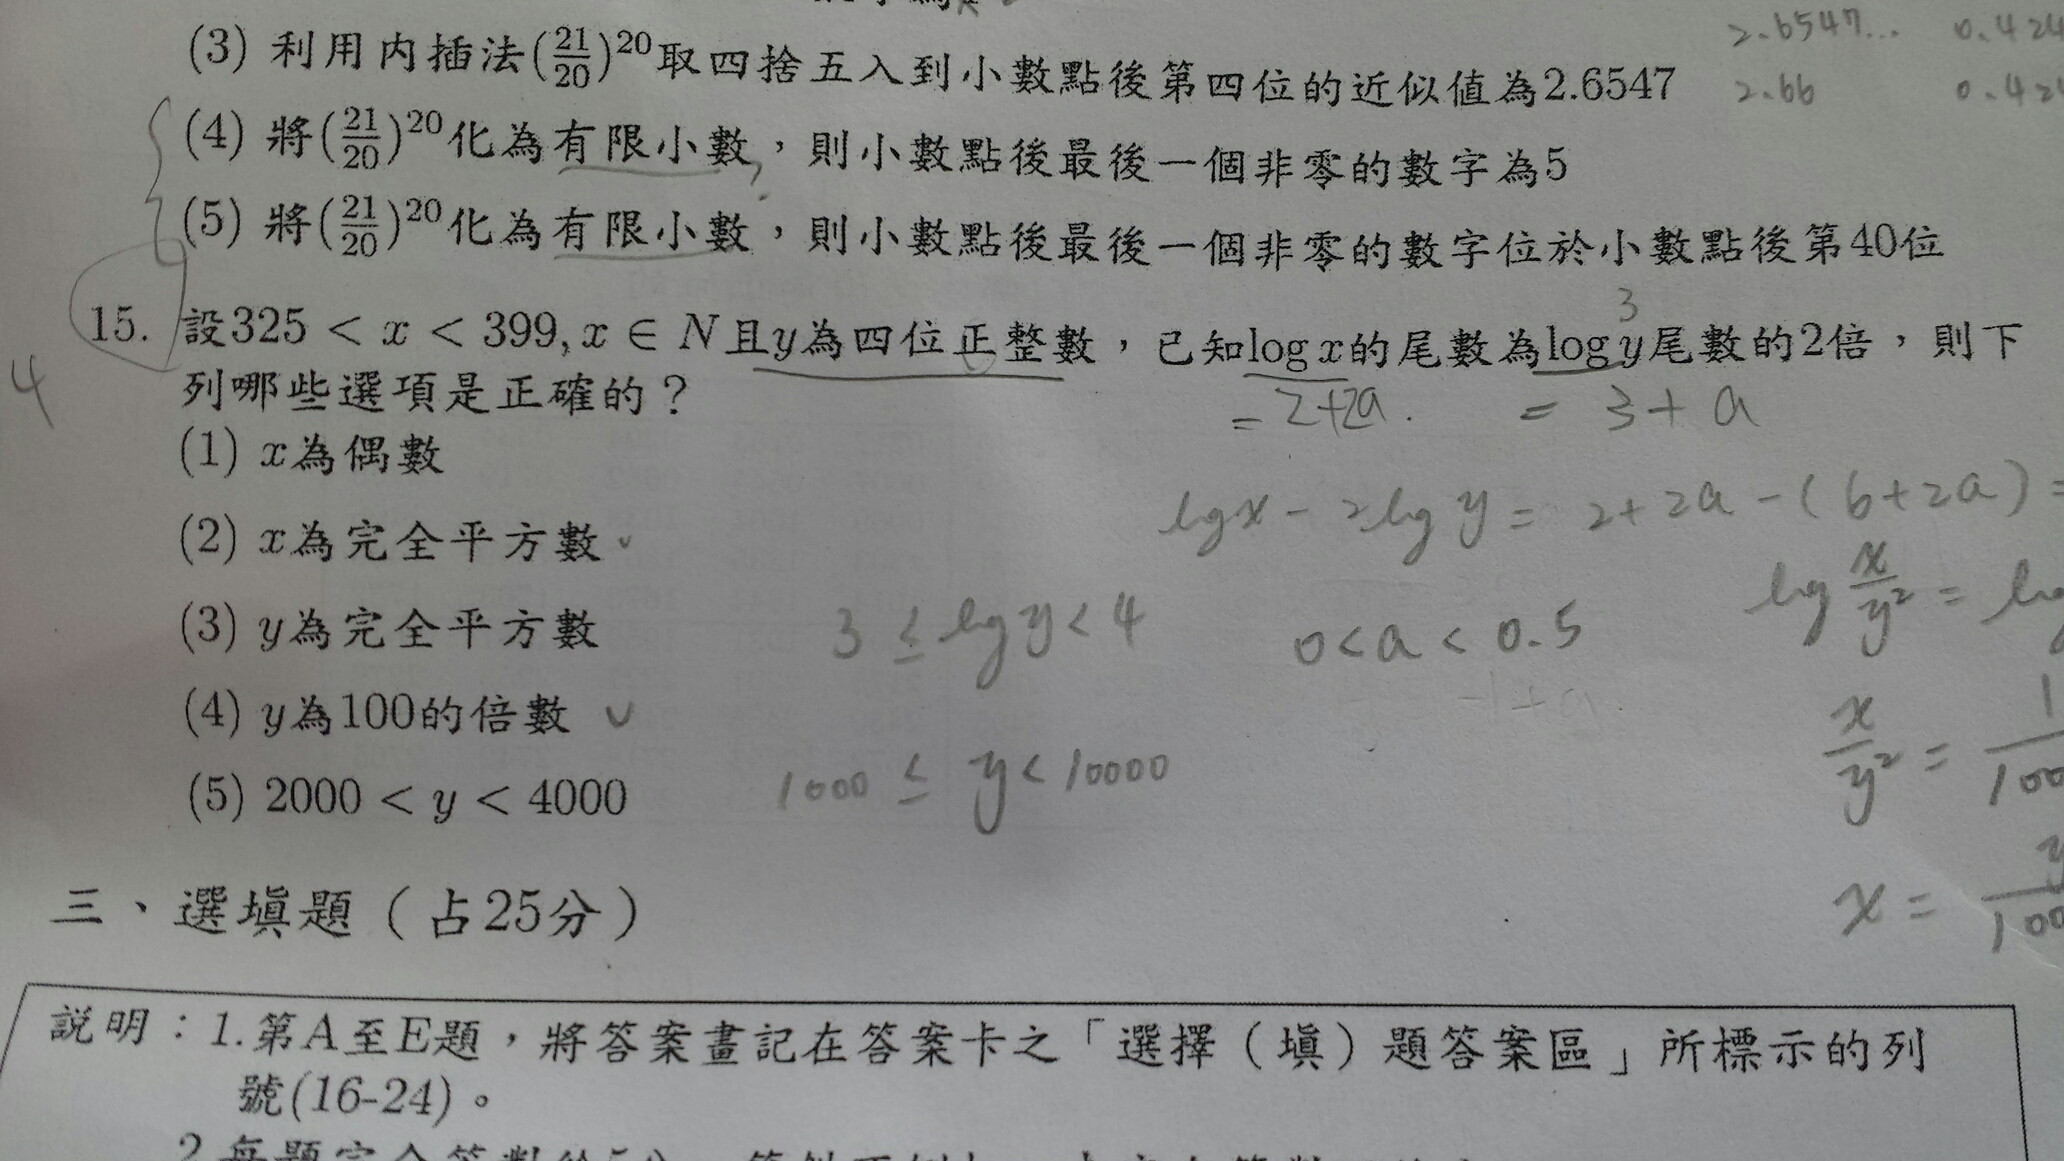 2.6547... 0.424
(3) 利用內插法(21/20)^20取四捨五入到小數點後第四位的近似值為2.6547
2.66 0.42
(4) 將(21/20)^20化為有限小數，則小數點後最後一個非零的數字為5
?
(5) 將(21/20)^20化為有限小數，則小數點後最後一個非零的數字位於小數點後第40位
3
15. 設325 < x < 399, x ∈ N且y為四位正整數，已知log x的尾數為log y尾數的2倍，則下
4 列哪些選項是正確的？
= 2+2a. = 3+a
(1) x為偶數
log x - 2log y = 2+2a-(6+2a) =
(2) x為完全平方數
log x/y² = log
(3) y為完全平方數 3 ≤ log y < 4 0<a<0.5
-1+a
(4) y為100的倍數
x/y² = 1/100
(5) 2000 < y < 4000 1000 ≤ y < 10000
x = y/100
三、選填題（占25分）
說明：1.第A至E題，將答案畫記在答案卡之「選擇（填）題答案區」所標示的列
號(16-24)。